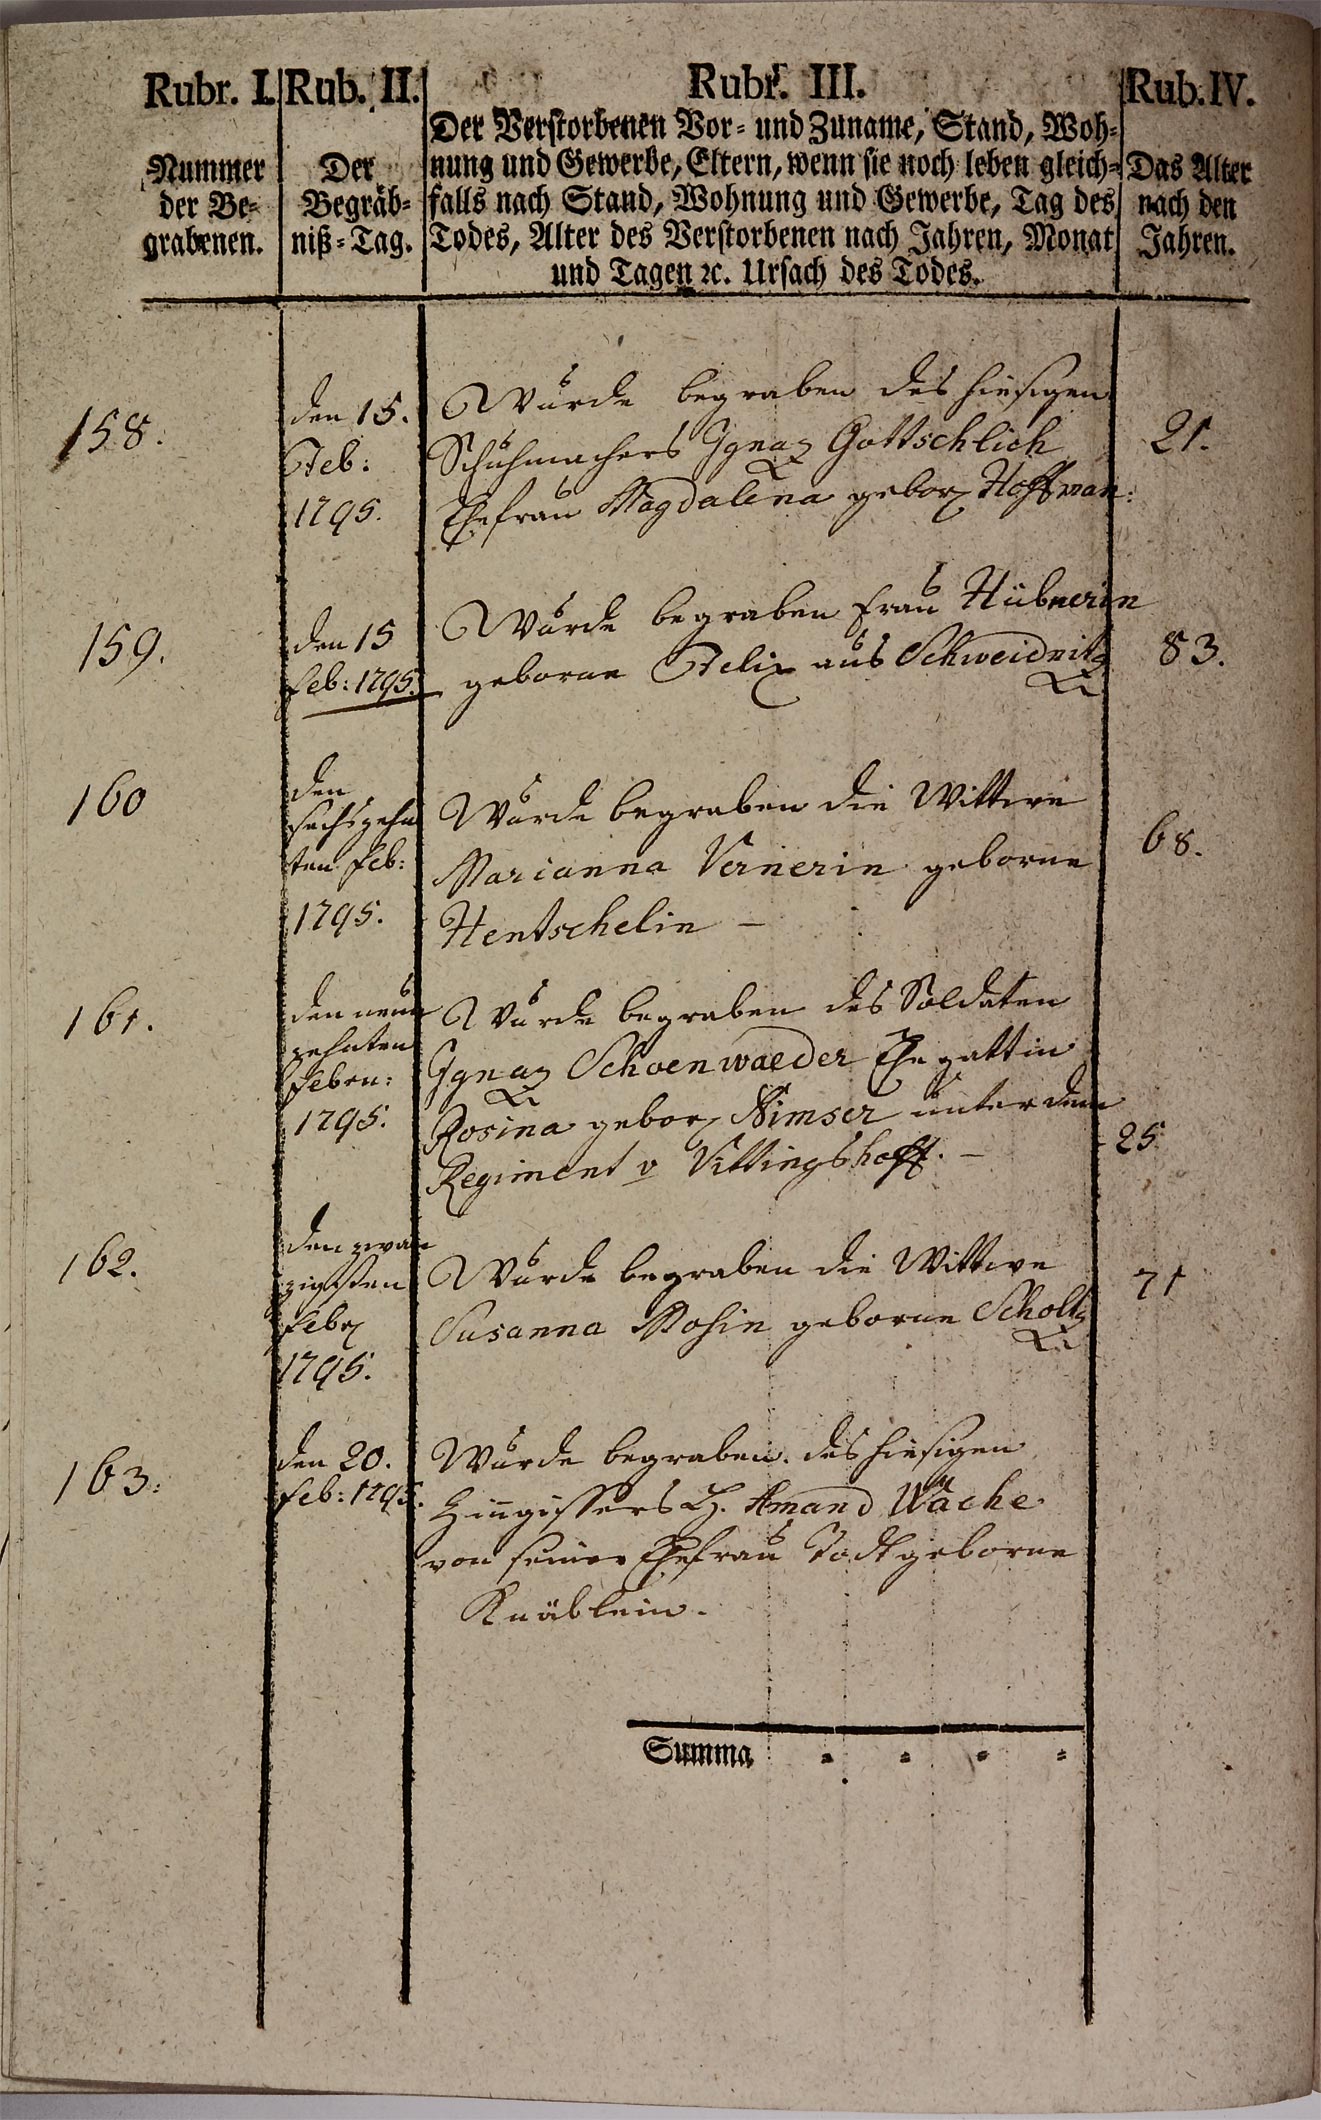 Rubr. I.
Nummer
der Be-
grabenen.
Rub. II.
Der
Begräb-
niß-Tag.
Rubr. III.
Der Verstorbenen Vor- und Zuname, Stand, Woh-
nung und Gewerbe, Eltern, wenn sie noch leben gleich-
falls nach Stand, Wohnung und Gewerbe, Tag des
Todes, Alter des Verstorbenen nach Jahren, Monat
und Tagen ꝛc. Ursach des Todes.
Rub. IV.
Das Alter
nach den
Jahren.
158.
den 15.
Feb:
1795.
Wurde begraben des hiesigen
Schuhmachers Ignaz Gottschlich
Ehefrau Magdalena gebor Hoffman:
21.
159.
den 15
Feb: 1795.
Wurde begraben Frau Hübnerin
geborne Felix aus Schweidnitz
83.
160
den
sechszehn
ten Feb:
1795.
Wurde begraben die Wittwe
Marianna Vernerin geborne
Hentschelin –
68.
161.
den neun
zehnten
Febru:
1795.
Wurde begraben des Soldaten
Ignaz Schoenwaeder Ehegattin
Rosina gebor Nimser unter dem
Regiment v Vittingshoff. –
25
162.
den zwan
zigsten
Febr
1795.
Wurde begraben die Wittwe
Susanna Rosin geborne Scholtz
71
163:
den 20.
Feb: 1795.
Wurde begraben des hiesigen
Zinngissers H. Amand Wache
von seiner Ehefrau Todtgeborne
Knäblein.
Summa - - - -